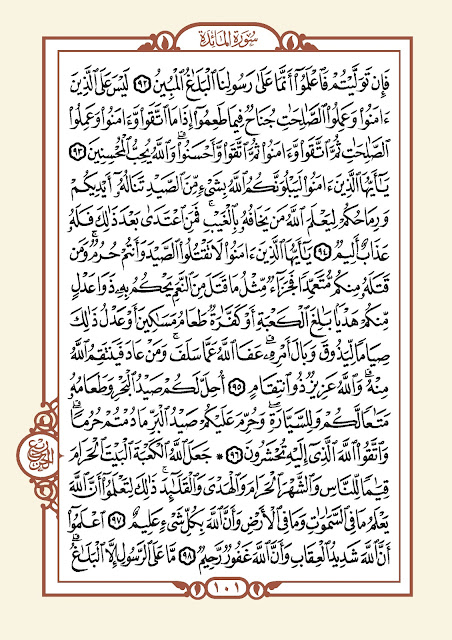 سُورَةُ المَائِدَةِ
فَإِن تَوَلَّيْتُمْ فَٱعْلَمُوٓا۟ أَنَّمَا عَلَىٰ رَسُولِنَا ٱلْبَلَٰغُ ٱلْمُبِينُ ٩٢ لَيْسَ عَلَى ٱلَّذِينَ
ءَامَنُوا۟ وَعَمِلُوا۟ ٱلصَّٰلِحَٰتِ جُنَاحٌ فِيمَا طَعِمُوٓا۟ إِذَا مَا ٱتَّقَوا۟ وَّءَامَنُوا۟ وَعَمِلُوا۟
ٱلصَّٰلِحَٰتِ ثُمَّ ٱتَّقَوا۟ وَّءَامَنُوا۟ ثُمَّ ٱتَّقَوا۟ وَّأَحْسَنُوا۟ ۗ وَٱللَّهُ يُحِبُّ ٱلْمُحْسِنِينَ ٩٣
يَٰٓأَيُّهَا ٱلَّذِينَ ءَامَنُوا۟ لَيَبْلُوَنَّكُمُ ٱللَّهُ بِشَىْءٍ مِّنَ ٱلصَّيْدِ تَنَالُهُۥٓ أَيْدِيكُمْ
وَرِمَاحُكُمْ لِيَعْلَمَ ٱللَّهُ مَن يَخَافُهُۥ بِٱلْغَيْبِ ۚ فَمَنِ ٱعْتَدَىٰ بَعْدَ ذَٰلِكَ فَلَهُۥ
عَذَابٌ أَلِيمٌ ٩٤ يَٰٓأَيُّهَا ٱلَّذِينَ ءَامَنُوا۟ لَا تَقْتُلُوا۟ ٱلصَّيْدَ وَأَنتُمْ حُرُمٌ ۚ وَمَن
قَتَلَهُۥ مِنكُم مُّتَعَمِّدًا فَجَزَآءٌ مِّثْلُ مَا قَتَلَ مِنَ ٱلنَّعَمِ يَحْكُمُ بِهِۦ ذَوَا عَدْلٍ
مِّنكُمْ هَدْيًۢا بَٰلِغَ ٱلْكَعْبَةِ أَوْ كَفَّٰرَةٌ طَعَامُ مَسَٰكِينَ أَوْ عَدْلُ ذَٰلِكَ
صِيَامًا لِّيَذُوقَ وَبَالَ أَمْرِهِۦ ۗ عَفَا ٱللَّهُ عَمَّا سَلَفَ ۚ وَمَنْ عَادَ فَيَنتَقِمُ ٱللَّهُ
مِنْهُ ۗ وَٱللَّهُ عَزِيزٌ ذُو ٱنتِقَامٍ ٩٥ أُحِلَّ لَكُمْ صَيْدُ ٱلْبَحْرِ وَطَعَامُهُۥ
مَتَٰعًا لَّكُمْ وَلِلسَّيَّارَةِ ۖ وَحُرِّمَ عَلَيْكُمْ صَيْدُ ٱلْبَرِّ مَا دُمْتُمْ حُرُمًا ۗ
وَٱتَّقُوا۟ ٱللَّهَ ٱلَّذِىٓ إِلَيْهِ تُحْشَرُونَ ٩٦ ۞ جَعَلَ ٱللَّهُ ٱلْكَعْبَةَ ٱلْبَيْتَ ٱلْحَرَامَ
قِيَٰمًا لِّلنَّاسِ وَٱلشَّهْرَ ٱلْحَرَامَ وَٱلْهَدْىَ وَٱلْقَلَٰٓئِدَ ۚ ذَٰلِكَ لِتَعْلَمُوٓا۟ أَنَّ ٱللَّهَ
يَعْلَمُ مَا فِى ٱلسَّمَٰوَٰتِ وَمَا فِى ٱلْأَرْضِ وَأَنَّ ٱللَّهَ بِكُلِّ شَىْءٍ عَلِيمٌ ٩٧ ٱعْلَمُوٓا۟
أَنَّ ٱللَّهَ شَدِيدُ ٱلْعِقَابِ وَأَنَّ ٱللَّهَ غَفُورٌ رَّحِيمٌ ٩٨ مَّا عَلَى ٱلرَّسُولِ إِلَّا ٱلْبَلَٰغُ ۗ
١٠١